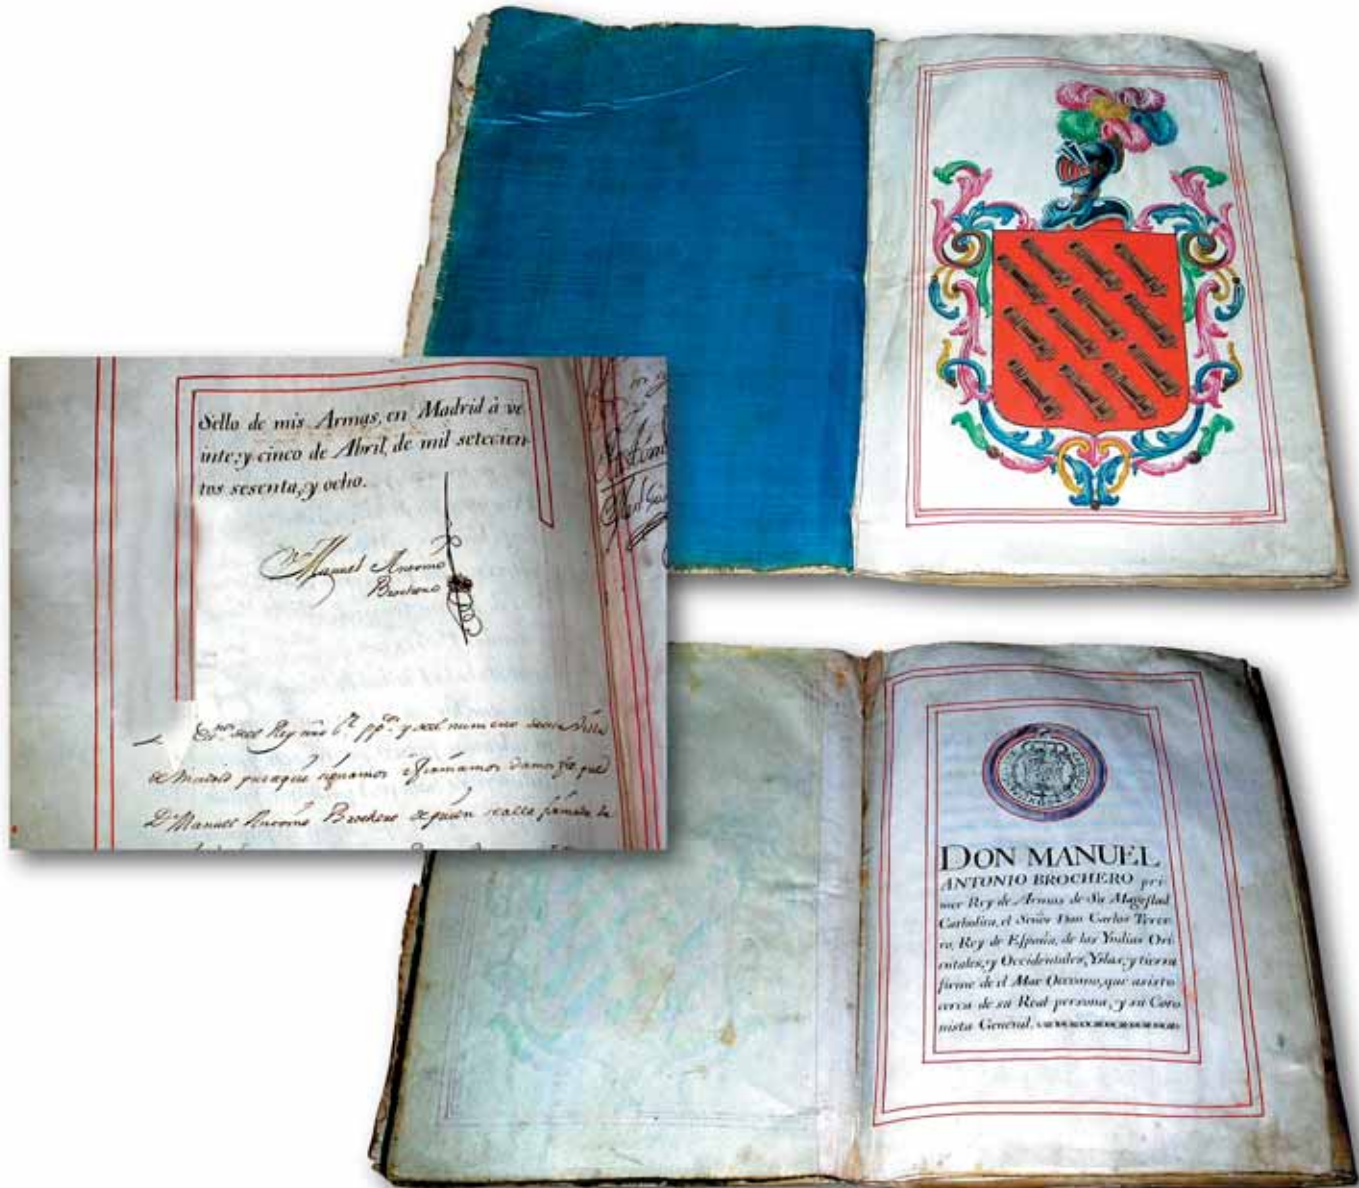 Sello de mis Armas, en Madrid à ve
inte, y cinco de Abril, de mil setecien-
tos sesenta, y ocho.
Dn Manuel Antonio
Brochero
de Madrid para que signamos y firmamos damos fee que
Dn Manuel Antonio Brochero de quien
DON MANUEL
ANTONIO BROCHERO pri-
mer Rey de Armas de Su Magestad
Catholica, el Señor Don Carlos Terce-
ro, Rey de España, de las Yndias Ori-
entales, y Occidentales, Yslas, y tierra
firme de el Mar Occeano, que asisto
cerca de su Real persona, y su Coro-
nista General.